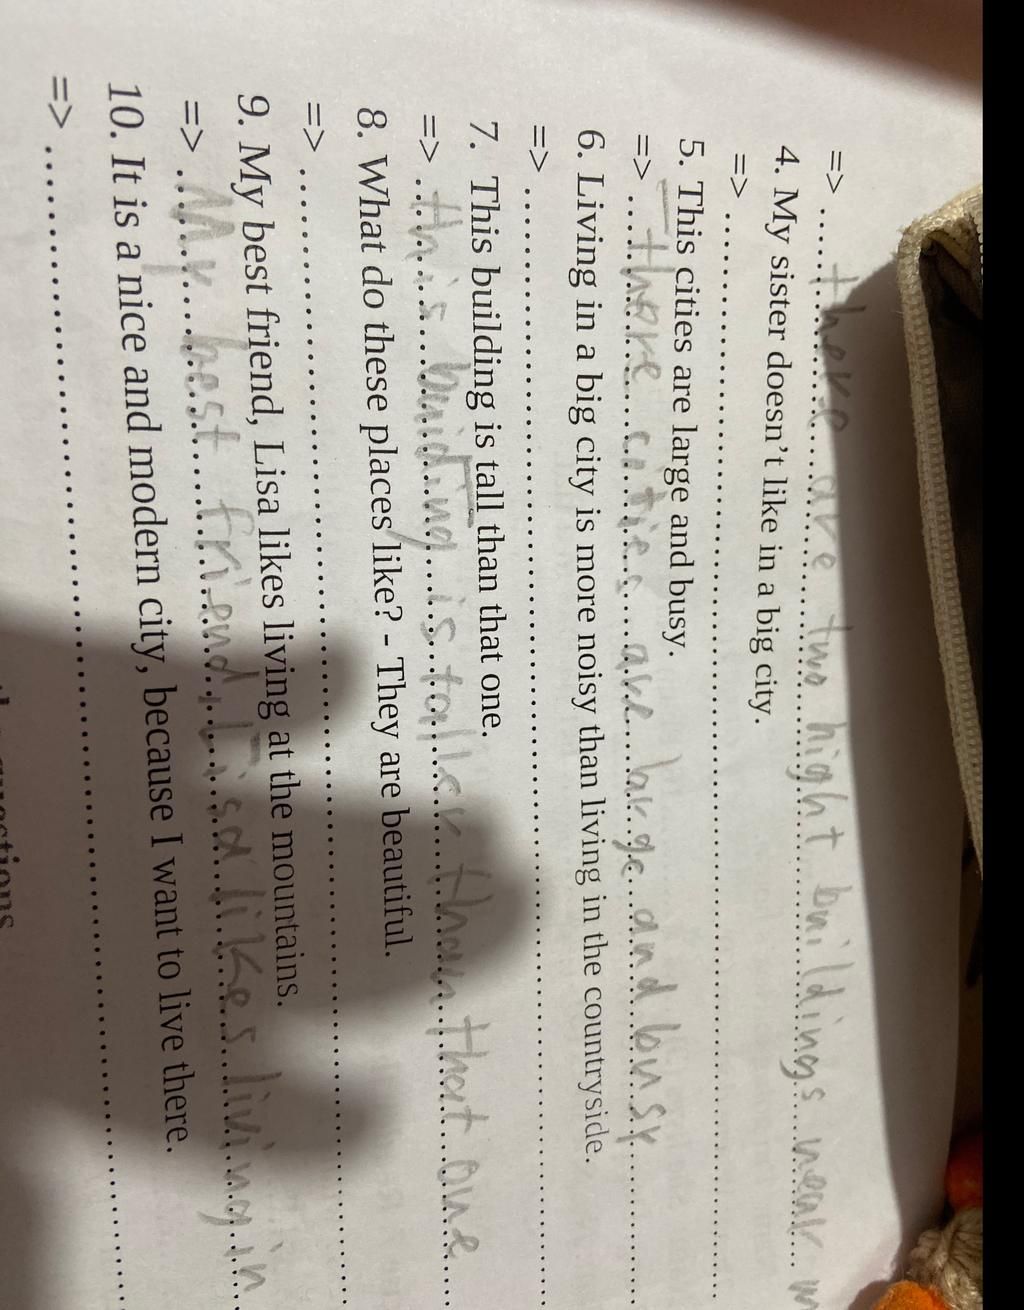 => ......there are two hight buildings near
4. My sister doesn't like in a big city.
=> ......
5. This cities are large and busy.
=> ....there cities are large and busy
6. Living in a big city is more noisy than living in the countryside.
=> ......
7. This building is tall than that one.
=> ....this buiding is taller than that one
8. What do these places like? - They are beautiful.
=> ......
9. My best friend, Lisa likes living at the mountains.
=> ....My best friend, Lisa likes living in
10. It is a nice and modern city, because I want to live there.
=> ......
questions